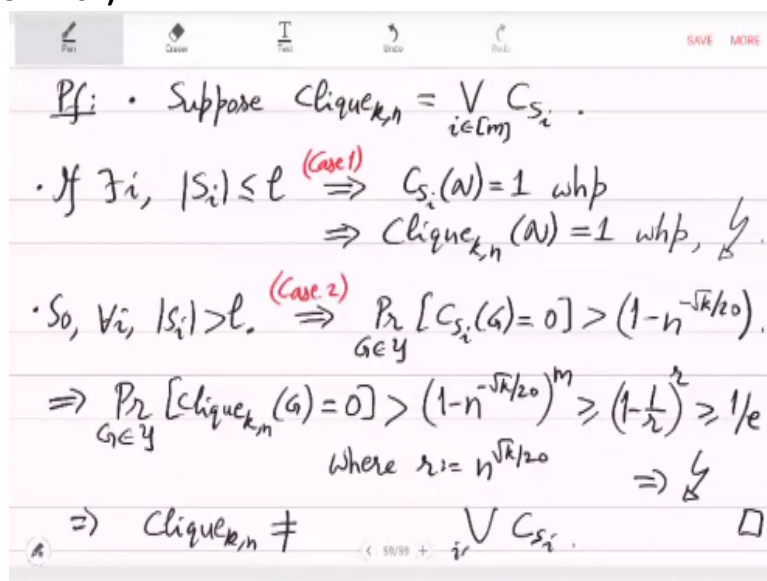 Pen Eraser Text Undo Redo SAVE MORE
Pf: · Suppose Clique_{k,n} = ⋁_{i∈[m]} C_{S_i} .
· If ∃i, |S_i| ≤ ℓ (Case 1) ⇒ C_{S_i}(N) = 1 whp
⇒ Clique_{k,n}(N) = 1 whp, ↯.
· So, ∀i, |S_i| > ℓ. (Case 2) ⇒ Pr_{G∈Y} [C_{S_i}(G) = 0] > (1-n^{-√k/20}).
⇒ Pr_{G∈Y} [Clique_{k,n}(G) = 0] > (1-n^{-√k/20})^m ≥ (1-1/r)^r ≥ 1/e
where r := n^{√k/20} ⇒ ↯
⇒ Clique_{k,n} ≠ ⋁_i C_{S_i} . □
< 59/59 +